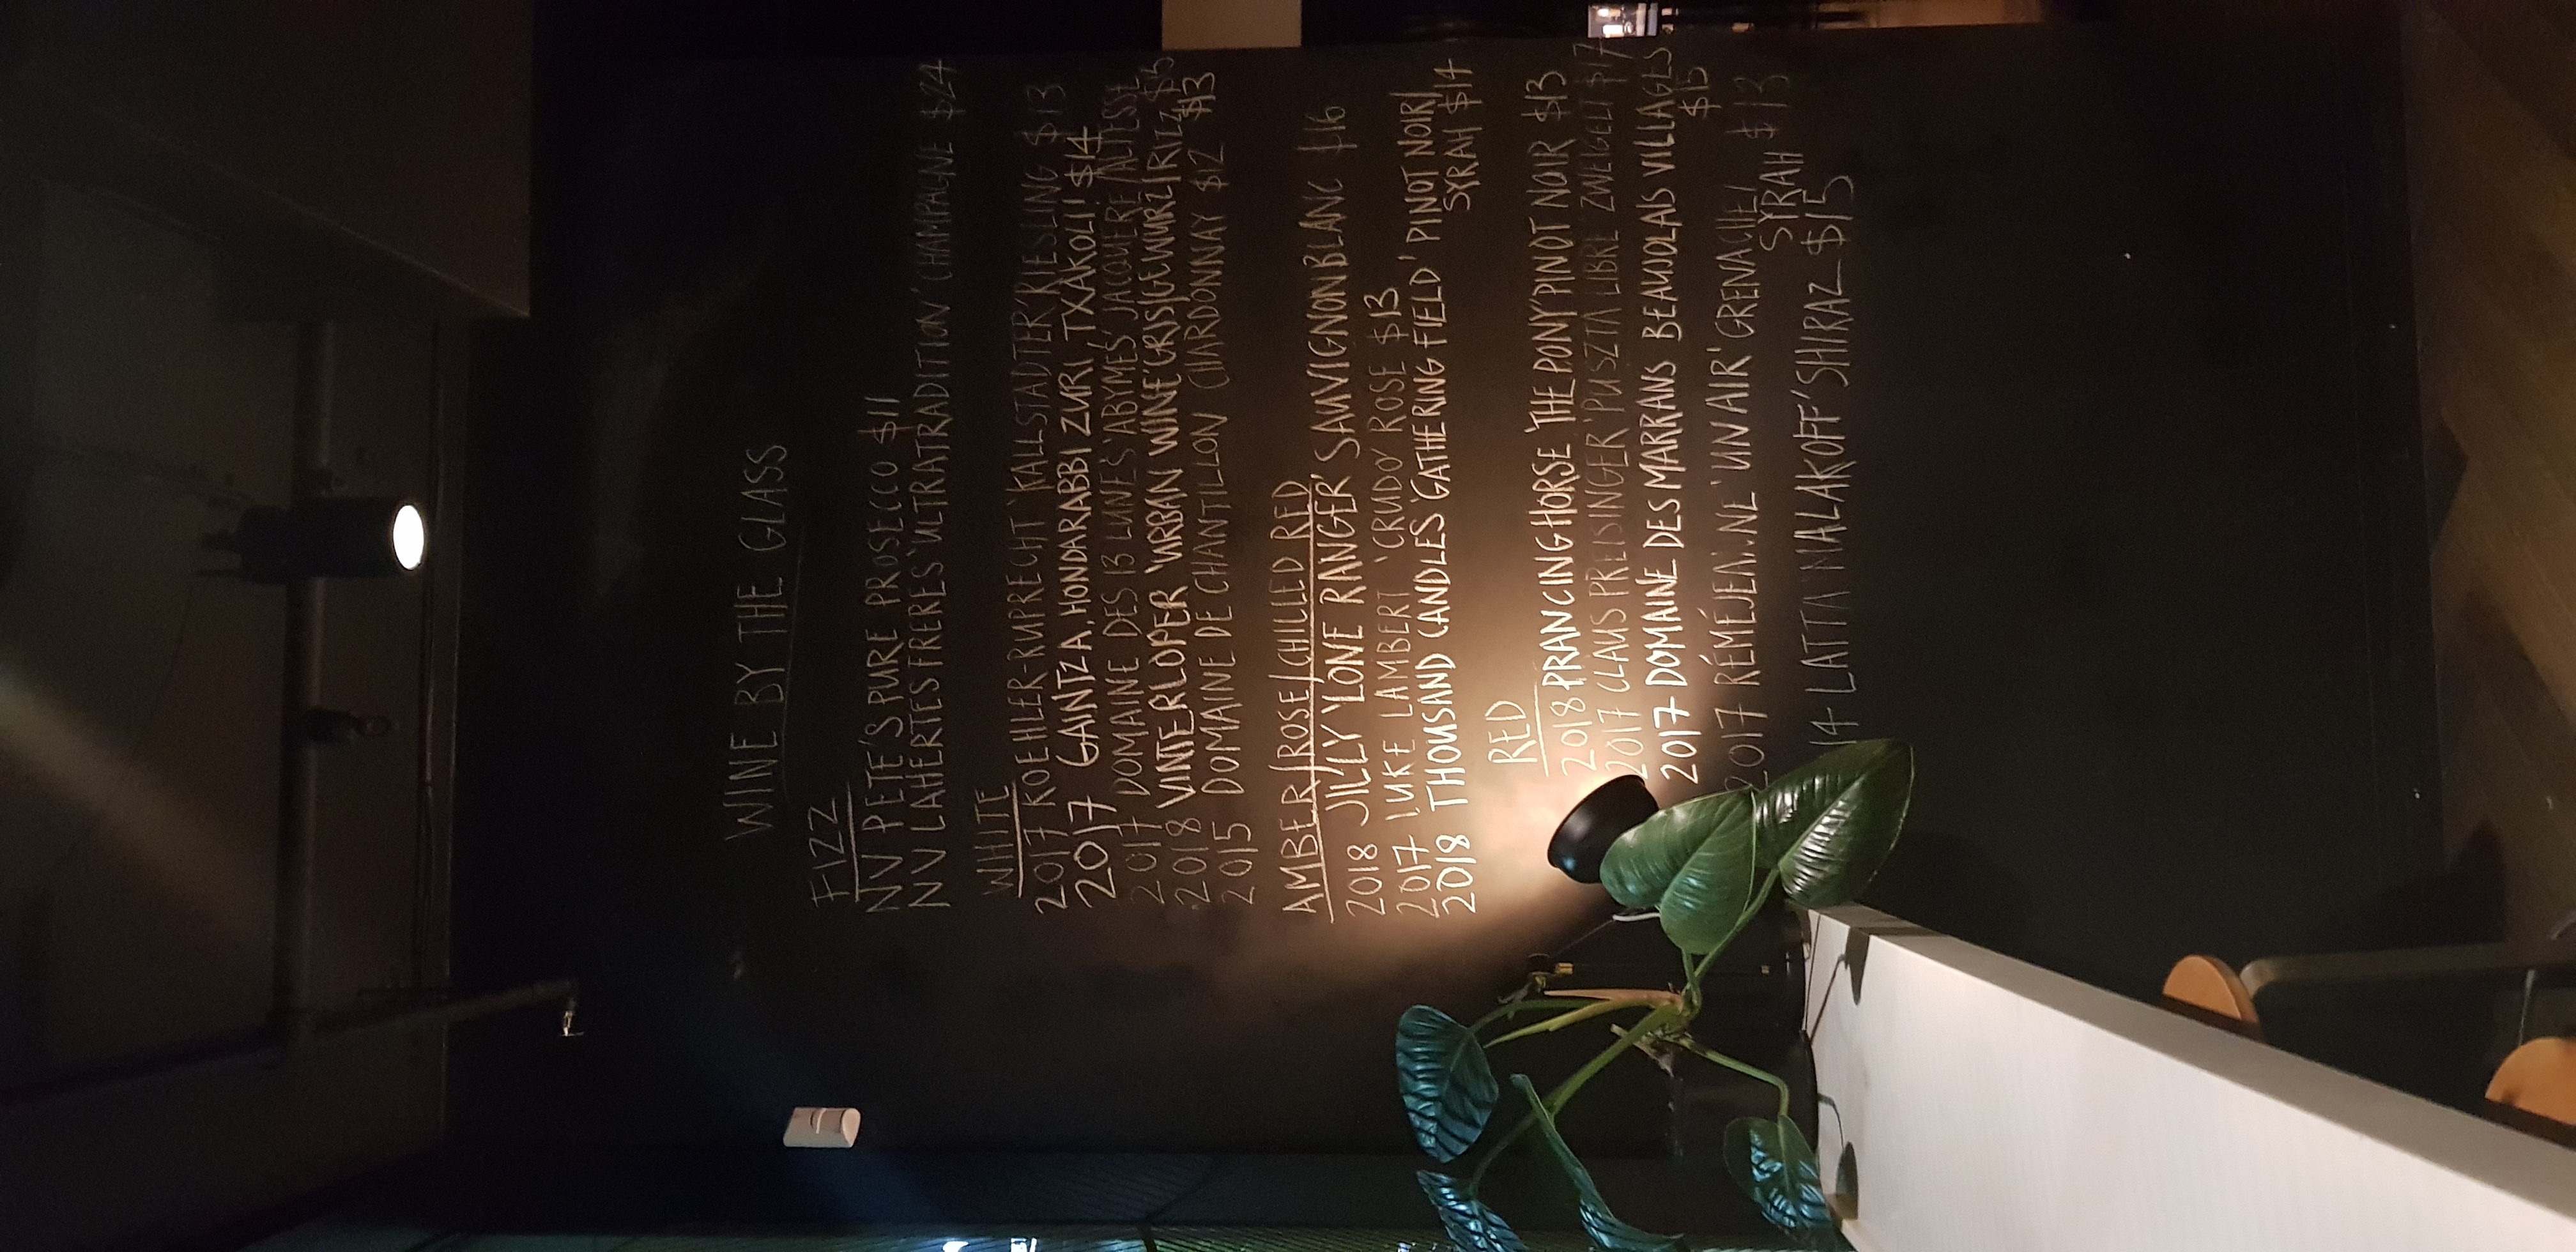 WINE BY THE GLASS
FIZZ
NV PETE'S PURE PROSECCO $11
NV LAHERTES FRERES 'ULTRATRADITION' CHAMPAGNE $24
WHITE
2017 KOEHLER-RUPRECHT 'KALLSTADTER' RIESLING $13
2017 GAINTZA, HONDARABBI ZURI, TXAKOLI! $14
2017 DOMAINE DES 13 LUNES 'ABYMES' JACQUERE/ALTESSE
2018 VINTERLOPER 'URBAN WINE' GRIS/GEWURZ/RIZZ
$13
2015 DOMAINE DE CHANTILLON CHARDONNAY $12
AMBER/ROSE/CHILLED RED
2018 JILLY 'LONE RANGER' SAUVIGNON BLANC $16
2017 LUKE LAMBERT 'CRUDO' ROSE $13
2018 THOUSAND CANDLES 'GATHERING FIELD' PINOT NOIR/
SYRAH $14
RED
2018 PRANCING HORSE 'THE PONY' PINOT NOIR $13
2017 CLAUS PREISINGER 'PUSZTA LIBRE ZWEIGELT $17
2017 DOMAINE DES MARRANS BEAUJOLAIS VILLAGES
$15
2017 RÉMÉJEANNE 'UN AIR' GRENACHE/
SYRAH $13
14 LATTA 'MALAKOFF' SHIRAZ $15